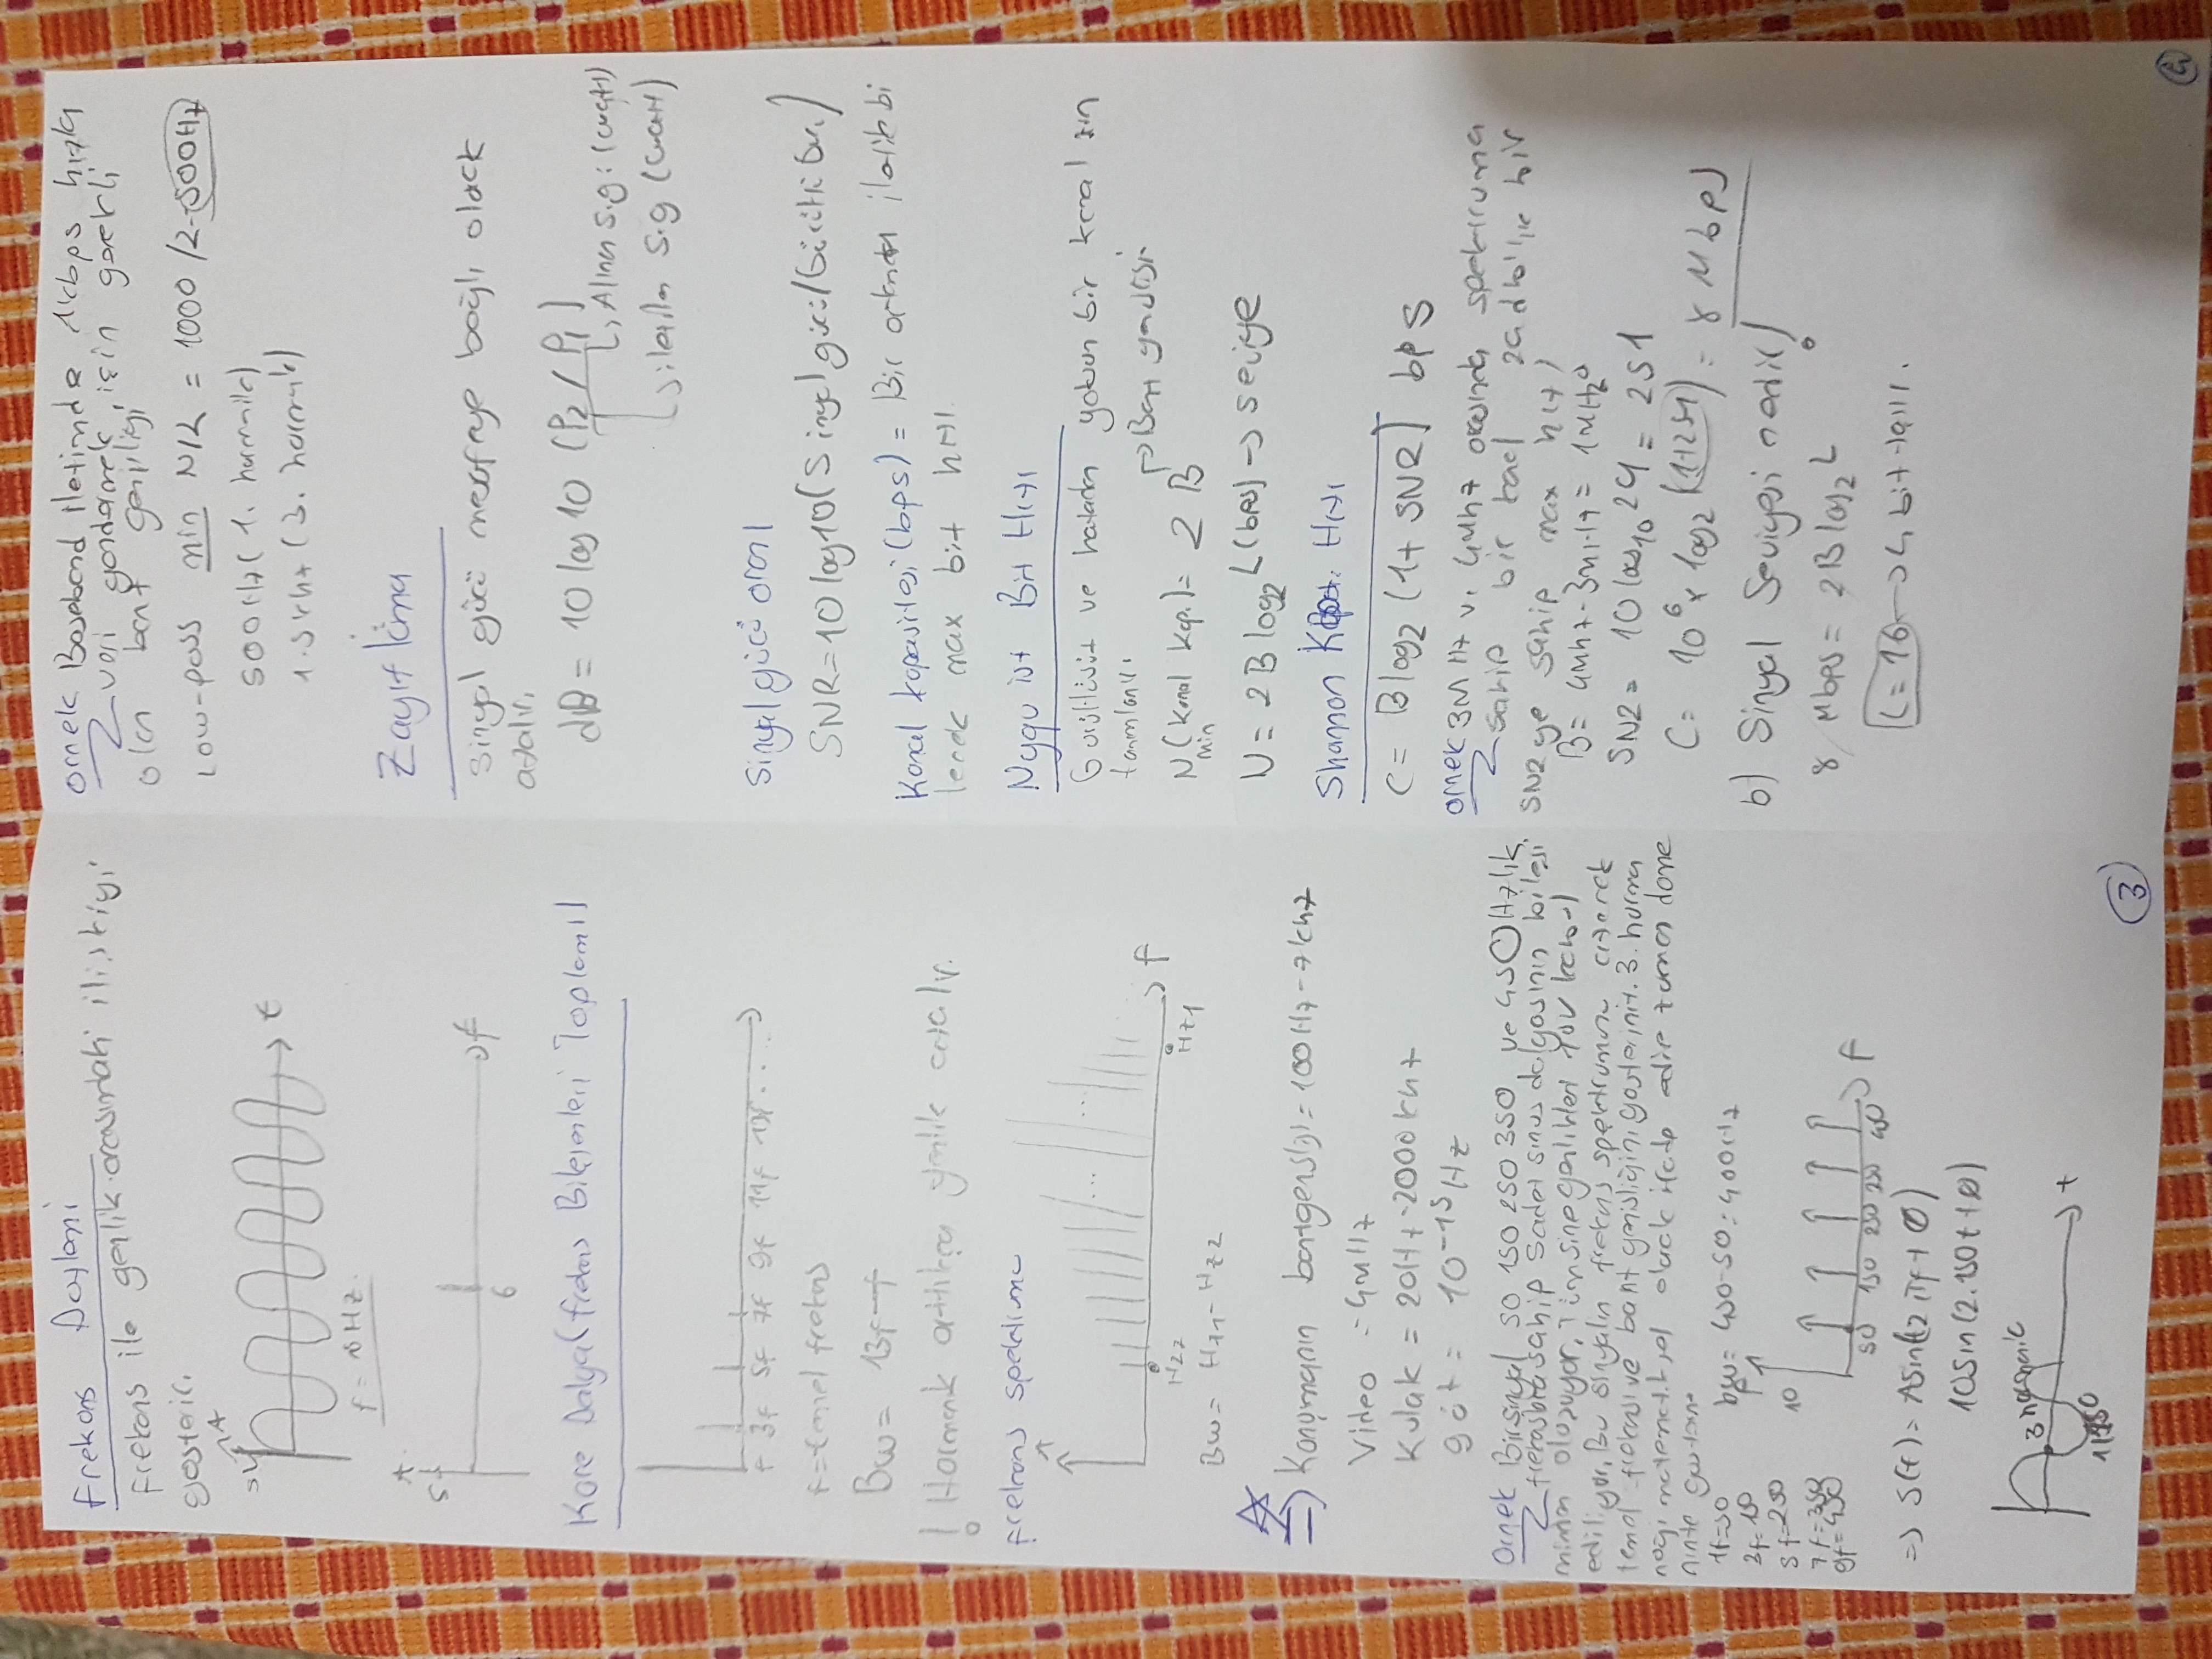 Frekans Davleni
Frekans ile genlik arasındaki ilişkiyi
gösterir.
A
5V
t
f = 6Hz.
A
5
f
6
Kare Dalga (frekans Bileşenleri Toplamı)
f 3f 5f 7f 9f 11f 13f . . . .
f = temel frekans
Bw = 13f-f
! Harmonik arttıkça genlik azalır.
frekans spektrumu
A
... ...
f
Hz2 Hz1
Bw = Hz1 - Hz2
=> Konuşmanın bantgenişliği = 100Hz - 7khz
Video = 4MHz
Kulak = 20Hz - 2000khz
göz = 10^-15 Hz
örnek Bir sinyal 50 150 250 350 ve 450Hzlik
frekanslara sahip 5 adet sinus dalgasının bileşi
minden oluşuyor. Tüm sine genlikleri 10V kabul
ediliyor. Bu sinyalin frekans spektrumunu çizerek
temel frekansı ve bant genişliğini gösteriniz. 3. harmo
noği matematiksel olarak ifade edip zaman dome
ninte gösterin.
1f=50
3f=150
5f=250
7f=350
9f=450
bw = 450-50 = 400Hz
10
50 150 250 350 450
f
=> S(t) = A sin(t2πf + Ø)
10 sin(2.150t + Ø)
3 harmonic
t
1/150
3
örnek Baseband iletimde 1kbps hızla
veri göndermek için gerekli
olan bant genişliği
Low-pass min N/2 = 1000 /2 = 500Hz
500Hz (1. harmonik)
1.5khz (3. harmonik)
Zayıflama
Sinyal gücü mesafeye bağlı olarak
azalır.
dB = 10 log 10 (P2 / P1)
Alınan s.g : (watt)
iletilen S.g (watt)
Sinyal gücü oranı
SNR = 10 log10 (Sinyal gücü / Gürültü Gü.)
Kanal kapasitesi (bps) = Bir ortamdan iletilebi
lecek max bit hızı.
Nyquist Bit Hızı
Gürültüsüz ve hatadan yoksun bir kanal için
tanımlanır.
Bant genişliği
N (Kanal Kap.) = 2 B
min
N = 2 B log2 L (bps) -> seviye
Shannon Kapat. Hızı
C = B log2 (1 + SNR) bps
örnek 3M Hz ve 4Mhz arasında spektruma
sahip bir kanal 24 db'lik bir
SNR ye sahip max hızı
B = 4Mhz - 3MHz = 1MHz
SNR = 10 log10 24 = 251
C = 10^6 x log2 (1+251) = 8 Mbps
b) Sinyal Seviyesi nedir!
8 Mbps = 2B log2 L
L = 16 -> 4 bit
4